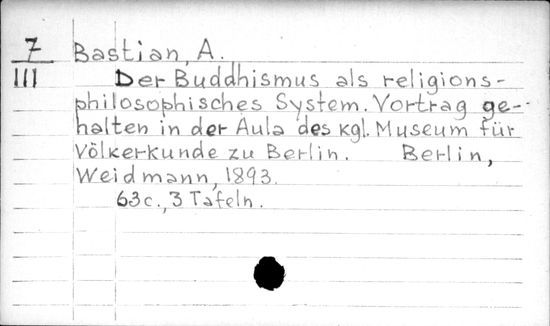 7 Bastian, A.
III Der Buddhismus als religions-
philosophisches System. Vortrag ge-
halten in der Aula des kgl. Museum für
Völkerkunde zu Berlin. Berlin,
Weidmann, 1893.
63c., 3 Tafeln.